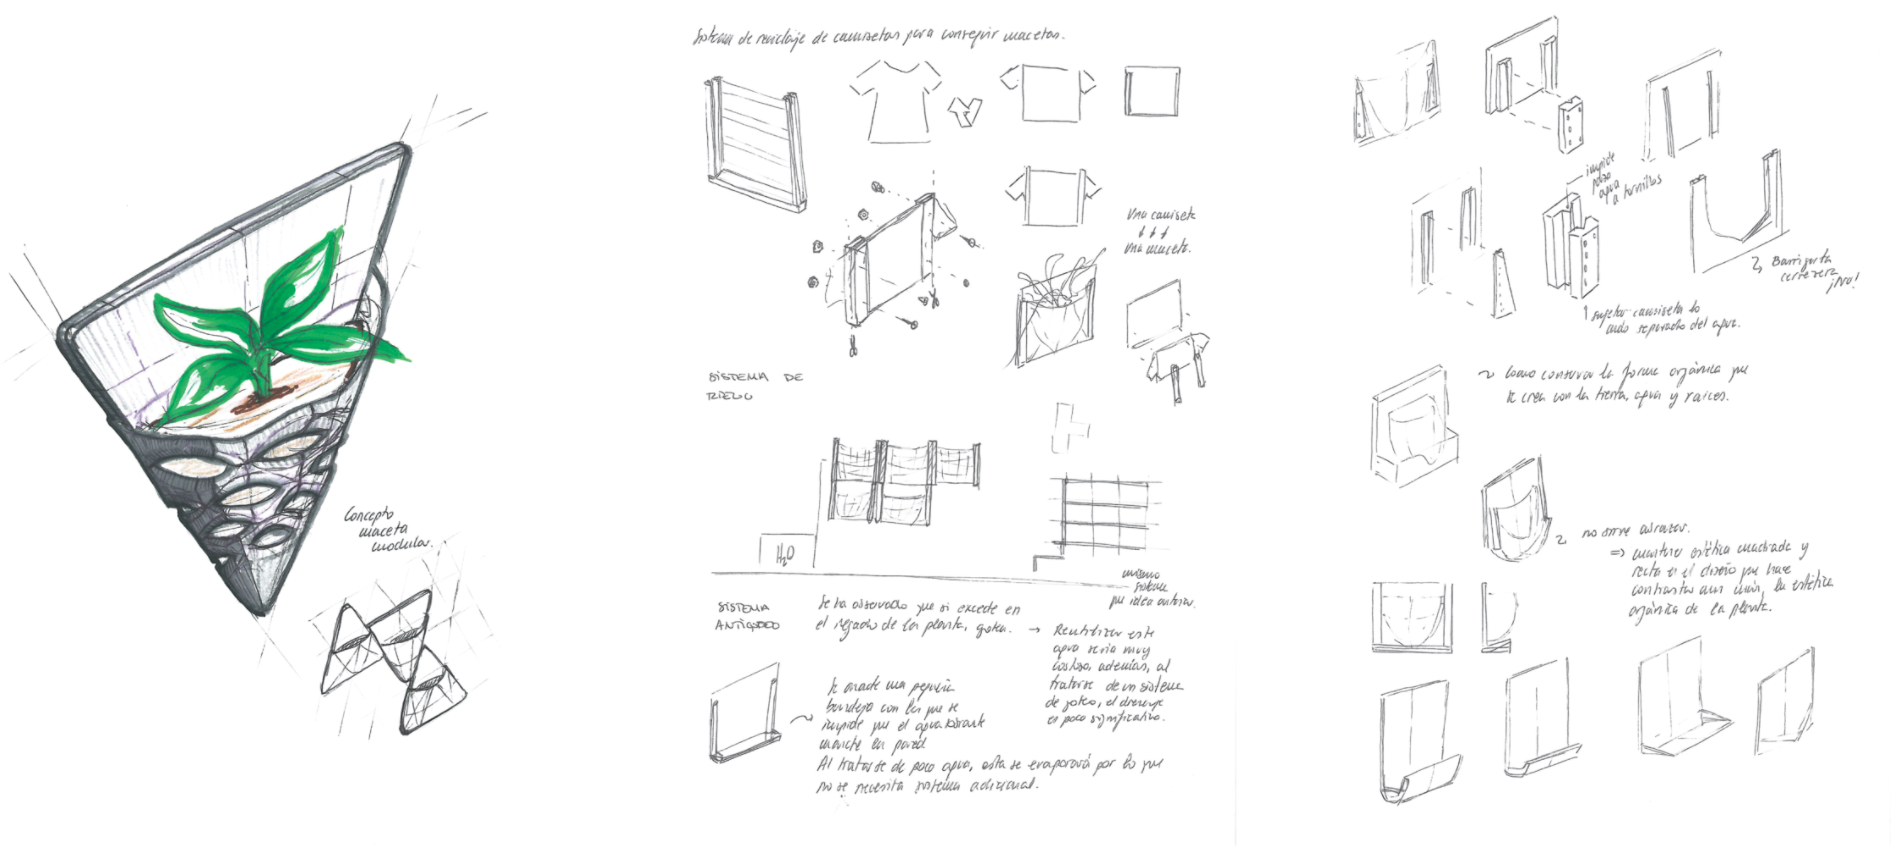 Concepto
maceta
modular.
Sistema de reciclaje de camisetas para conseguir macetas.
Una camiseta
una maceta.
SISTEMA DE
RIEGO
H₂O
mismo
sistema
que idea anterior.
SISTEMA
ANTIGOTEO
Se ha observado que si excede en
el regado de la planta, gotea.
→ Reutilizar este
agua sería muy
costoso, además, al
tratarse de un sistema
de goteo, el drenaje
es poco significativo.
Se añade una pequeña
bandeja con la que se
impide que el agua sobrante
manche la pared.
Al tratarse de poco agua, esta se evaporará por lo que
no se necesita sistema adicional.
impide
paso
agua
a tornillos
Barriguita
cervezera
¡No!
sujetar camiseta lo
más separado del agua.
Como conservar la forma orgánica que
se crea con la tierra, agua y raíces.
no sirve
⇒ mantener estética cuadrada y
recta en el diseño que hace
contrastar aun más, la estética
orgánica de la planta.